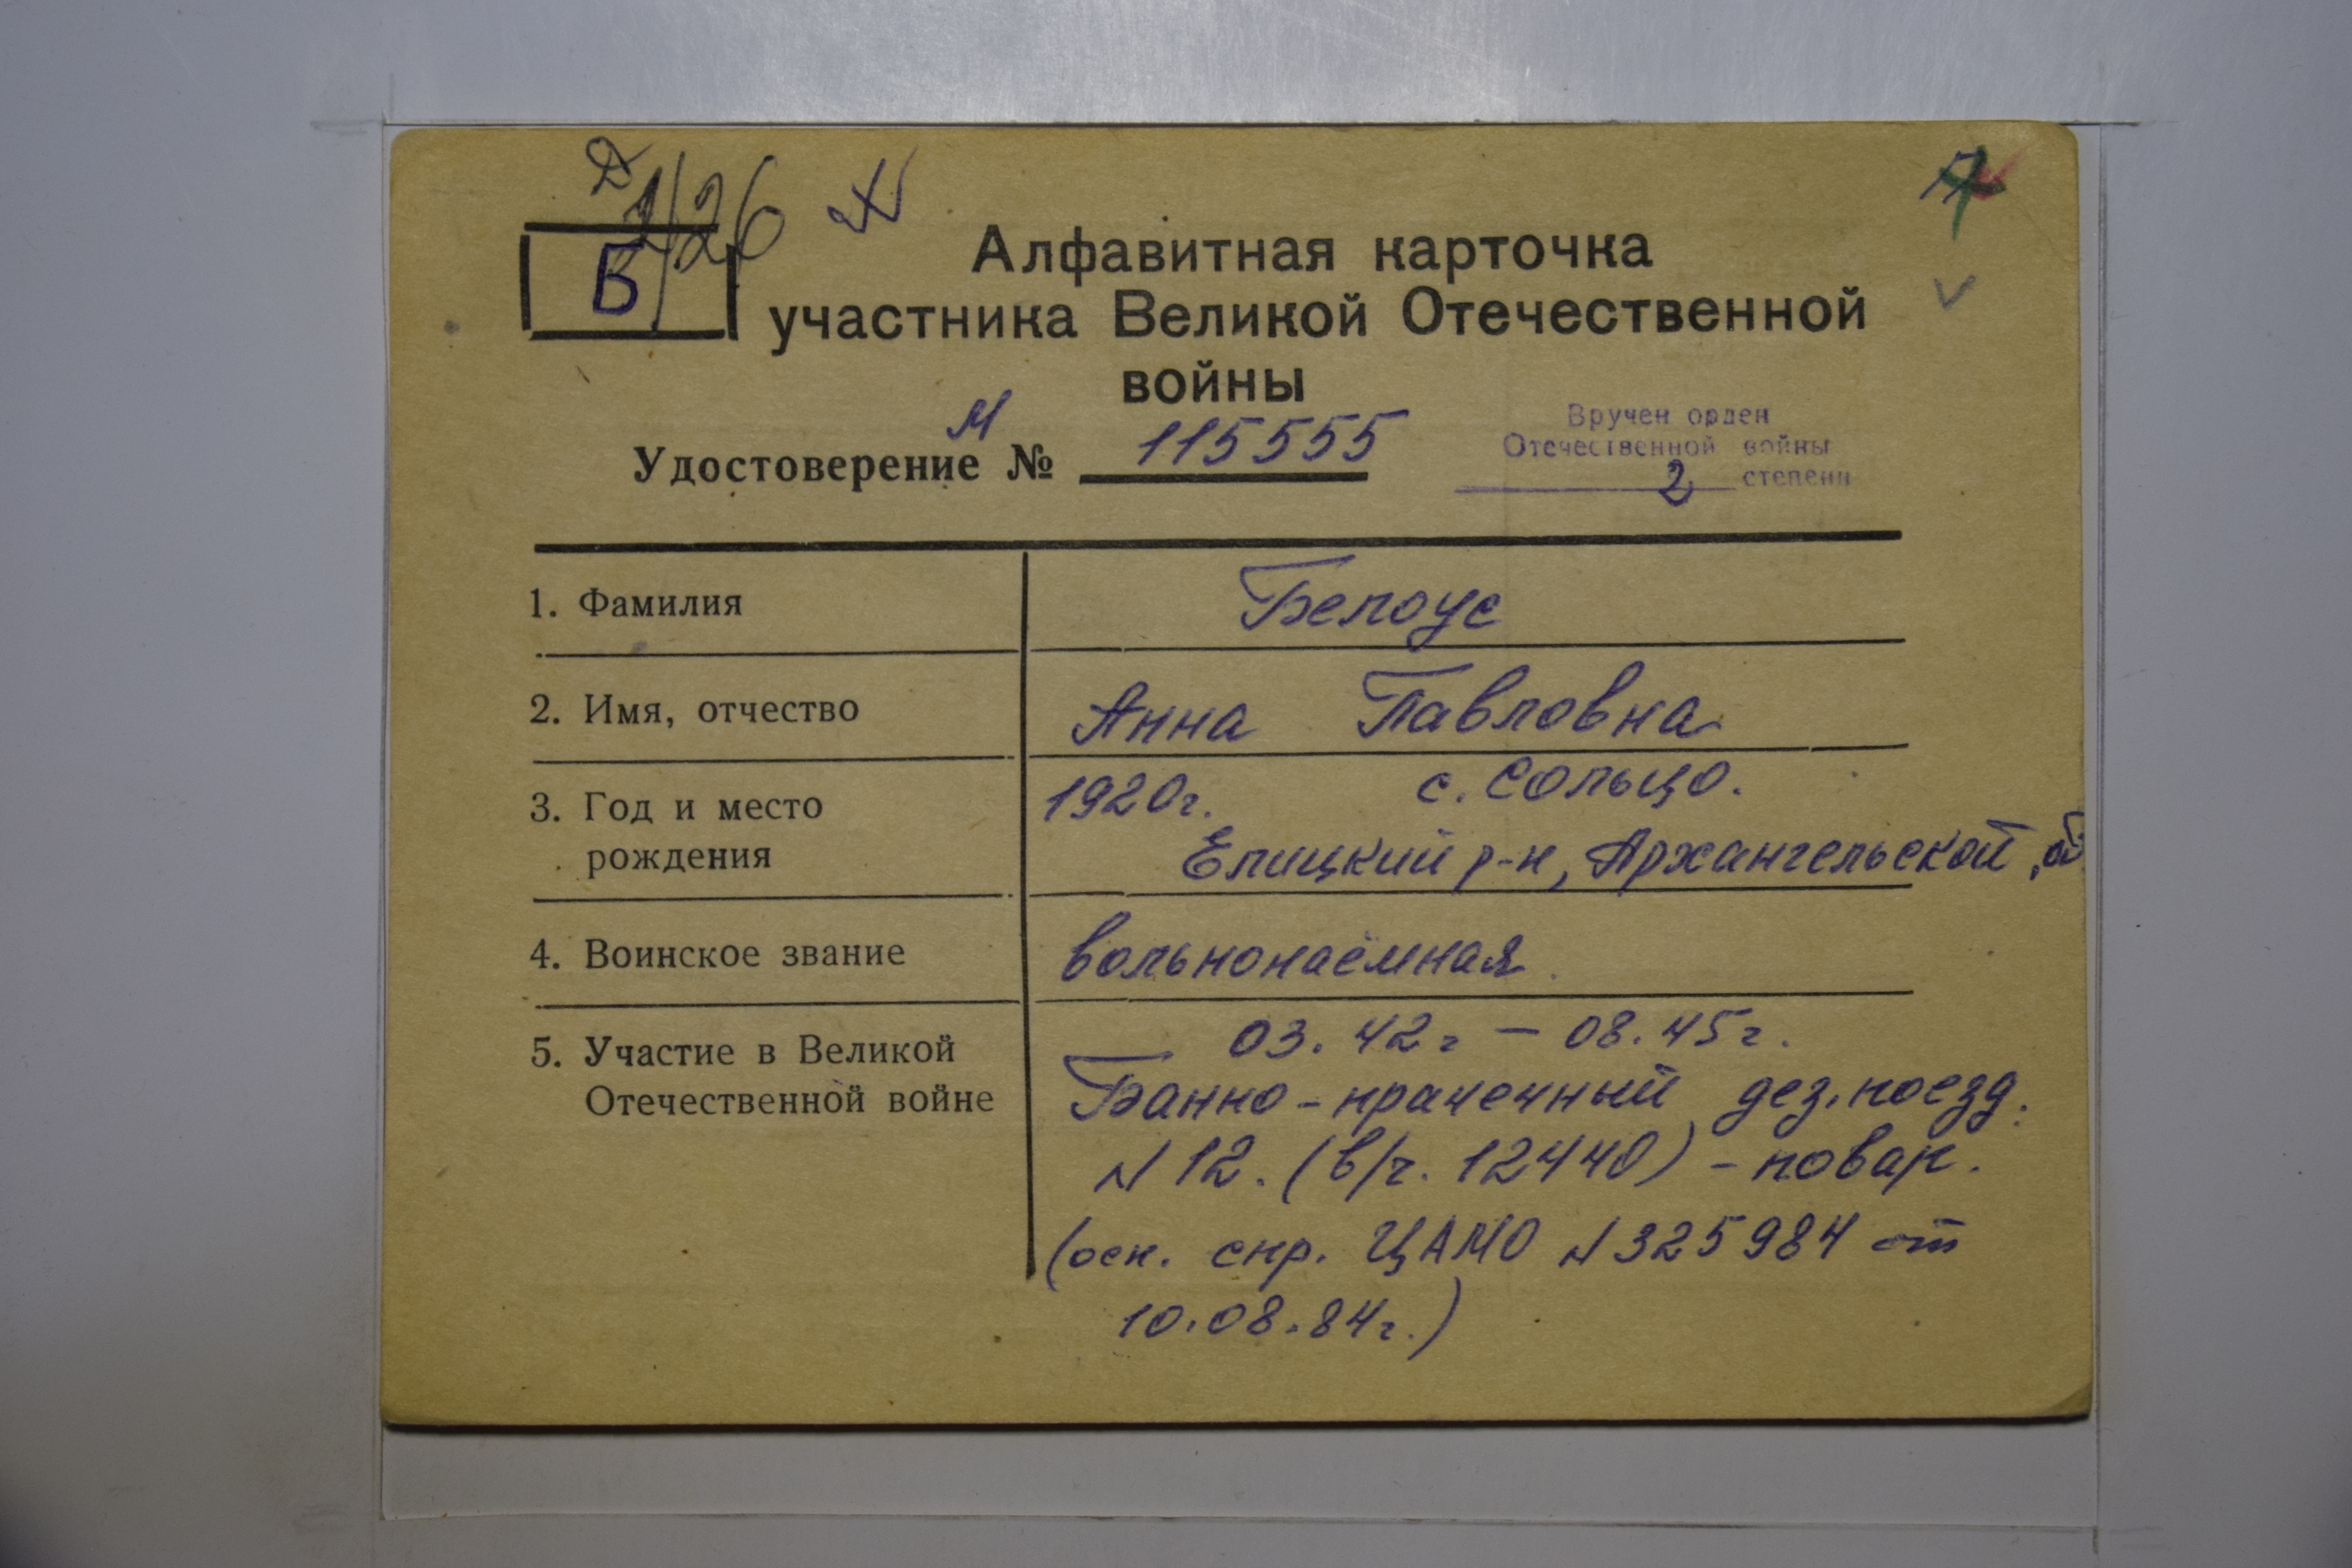 Д
1/26
Б
Алфавитная карточка
участника Великой Отечественной
войны
М
Удостоверение № 115555
Вручен орден
Отечественной войны
2 степени
1. Фамилия Белоус
2. Имя, отчество Анна Павловна
3. Год и место 1920г. с. Сольцо.
рождения Елицкий р-н, Архангельской об
4. Воинское звание вольнонаёмная
5. Участие в Великой 03.42г – 08.45г.
Отечественной войне Банно-прачечный дез. поезд.
N 12. (в/ч. 12440) – повар.
(осн. спр. ЦАМО N 325984 от
10.08.84г.)